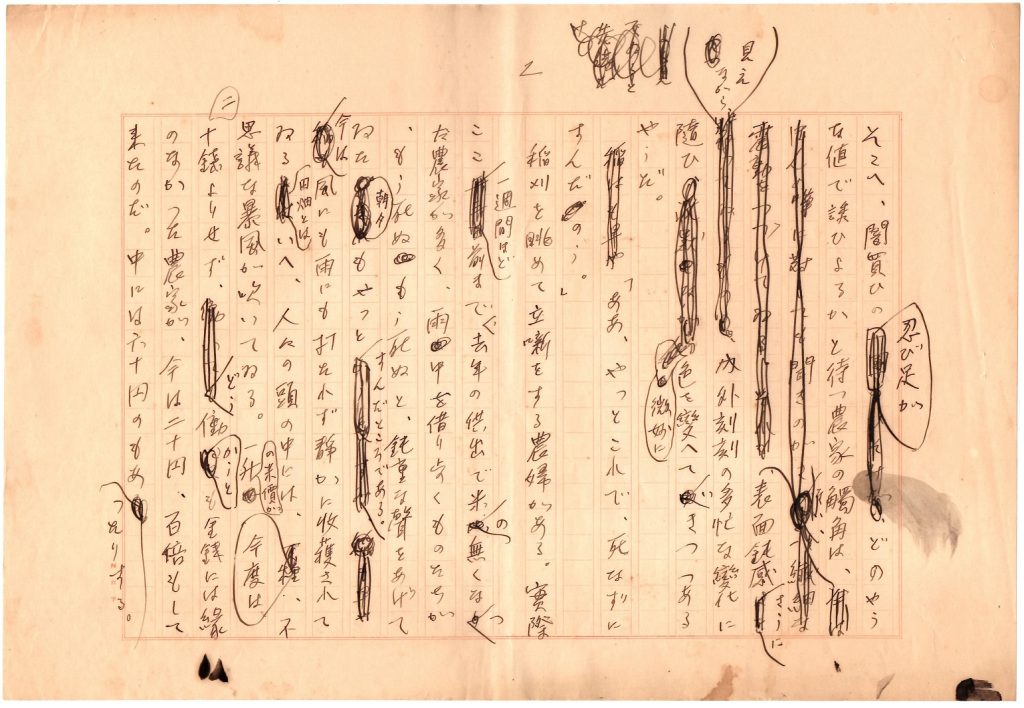 2
そこへ、闇買ひの忍び足が、どのやう
な値で誘ひよるかと待つ農家の觸角は、
繊細な
表面鈍感さうに
見えながら
内外刻刻の多忙な變化に
隨ひ、微妙に色を變へてゐきつつある
やうだ。
「ああ、やつとこれで、死なずに
すんだのう。」
稲刈を眺めて立噺をする農婦がある。實際
ここ一週間ほど前まで、去年の供出で米の無くなつ
た農家が多く、雨中を借り歩くものたちが
、もう死ぬもう死ぬと、鈍重な聲をあげて
ゐた朝夕もやつとすんだところである。
今は風にも雨にも打たれず靜かに收獲されて
ゐる田畑とはいへ、人々の頭の中には、一種、不
思議な暴風が吹いてゐる。一升の米價が今度は、
二十錢よりせず、どう働かうとも金錢には縁
のなかつた農家が、今は二十円、百倍もして
来たのだ。中には六十円のもあつたりする。